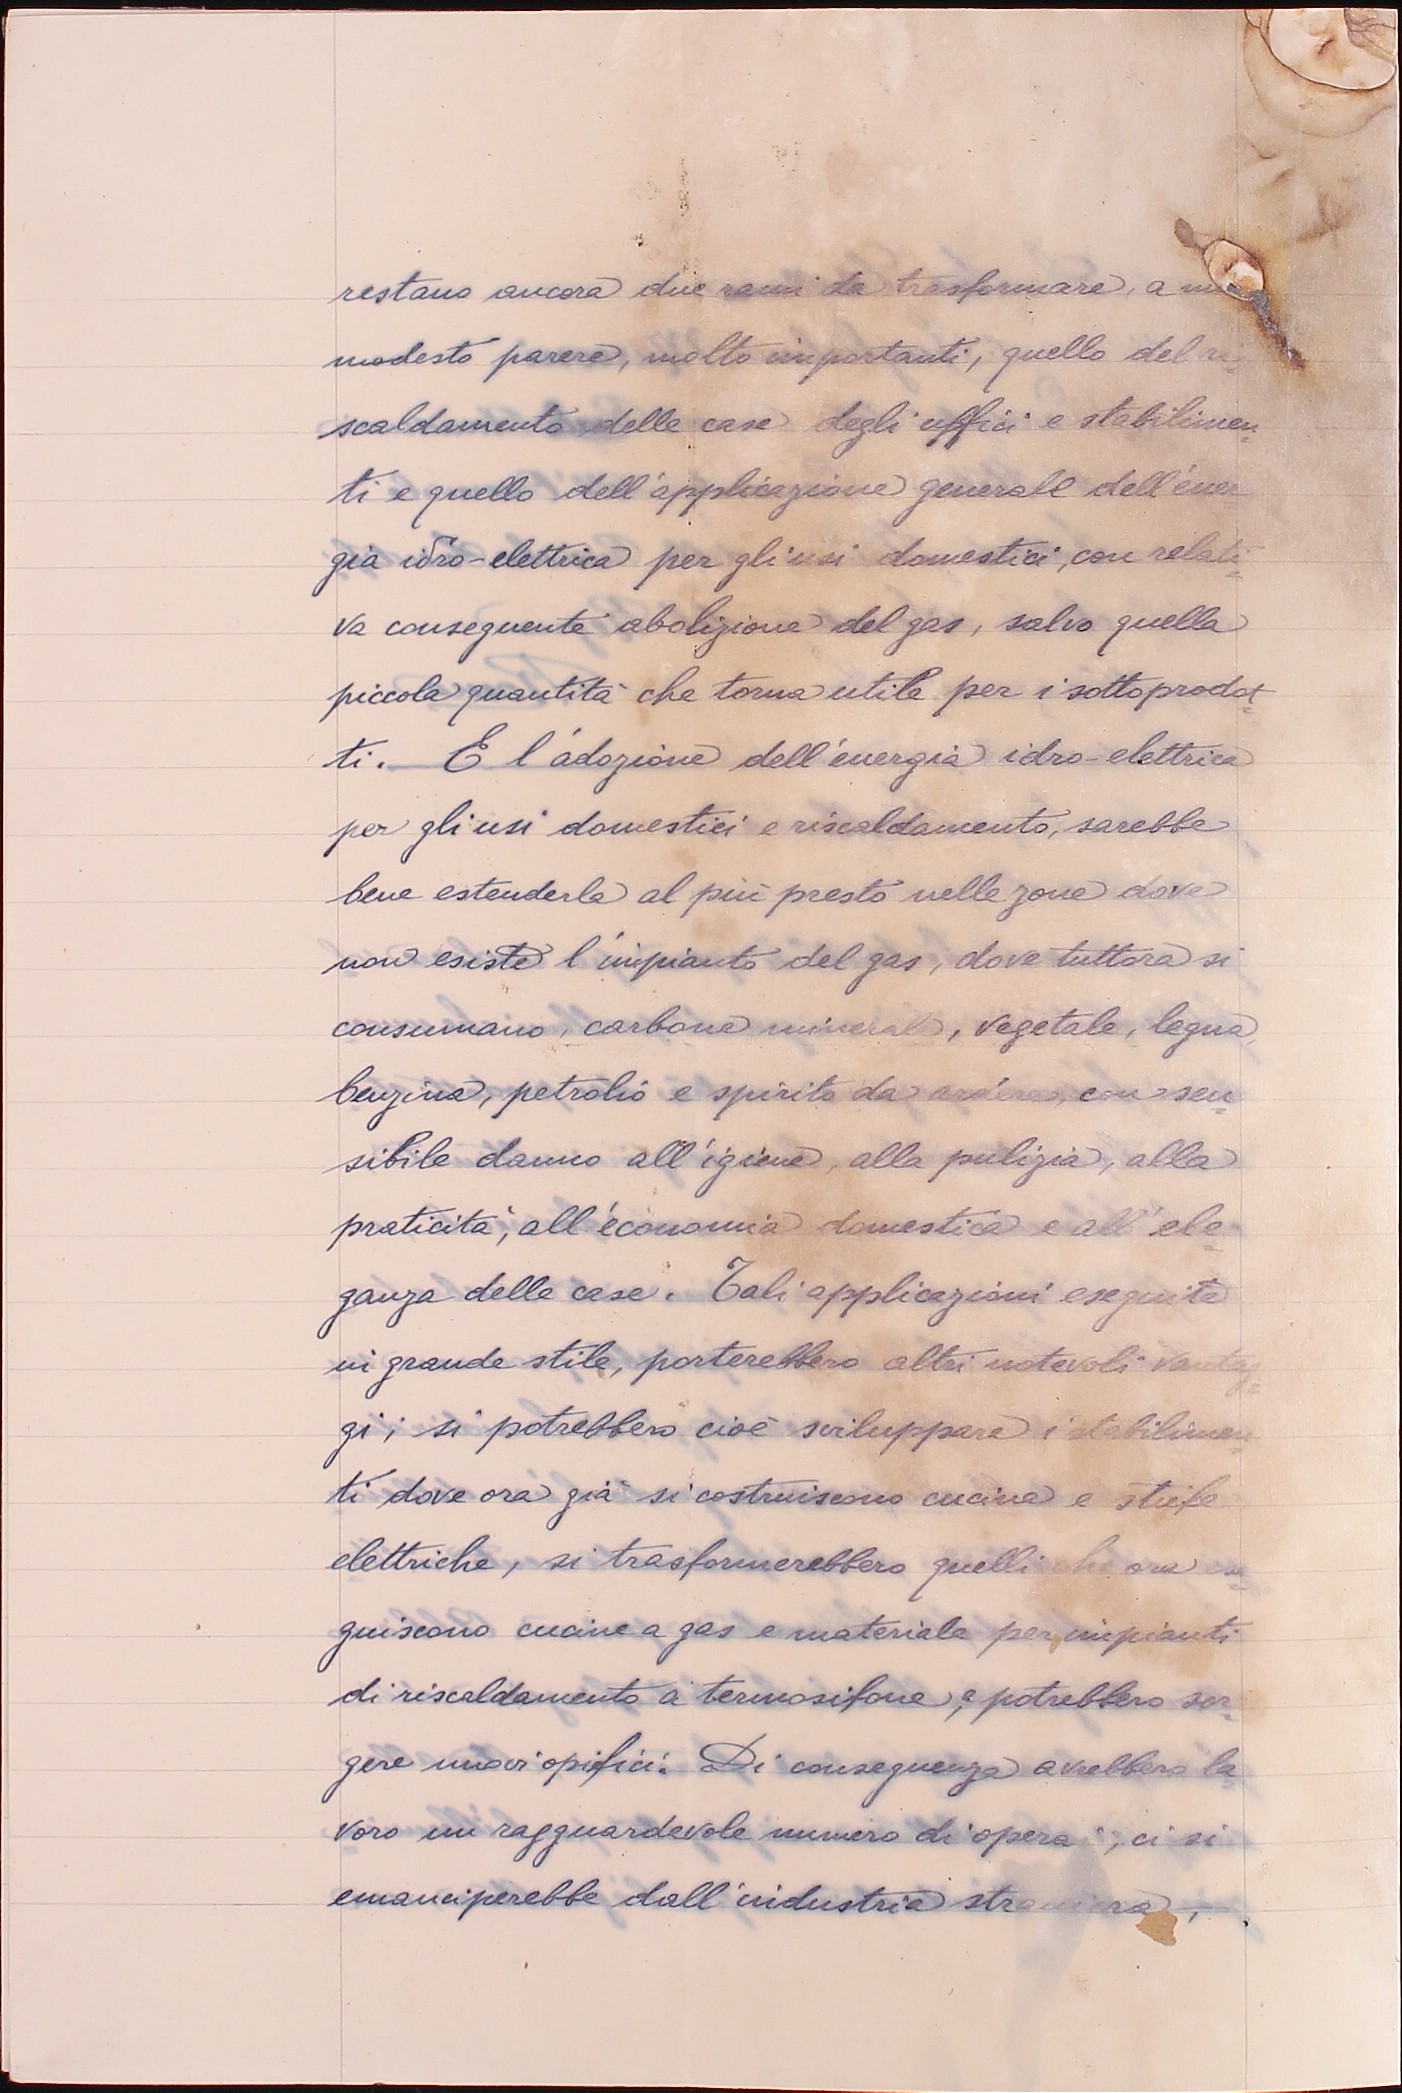 restano ancora due rami da trasformare, a mio
modesto parere, molto importanti, quello del ri=
scaldamento delle case degli uffici e stabilimen=
ti e quello dell'applicazione generale dell'ener
gia idro-elettrica per gli usi domestici, con relati=
va conseguente abolizione del gas, salvo quella
piccola quantità che torna utile per i sottoprodot=
ti. — E l'adozione dell'energia idro-elettrica
per gli usi domestici e riscaldamento, sarebbe
bene estenderla al più presto nelle zone dove
non esiste l'impianto del gas, dove tuttora si
consumano, carbone minerale, vegetale, legna,
benzina, petrolio e spirito da ardere, con sen=
sibile danno all'igiene, alla pulizia, alla
praticità, all'economia domestica e all'ele=
ganza delle case. Tali applicazioni eseguite
in grande stile, porterebbero altri notevoli vantag=
gi; si potrebbero cioè sviluppare i stabilimen=
ti dove ora già si costruiscono cucine e stufe
elettriche, si trasformerebbero quelli che ora ese=
guiscono cucine a gas e materiale per impianti
di riscaldamento a termosifone, e potrebbero sor=
gere nuovi opifici. Di conseguenza avrebbero la=
voro un ragguardevole numero di operai, ci si
emanciperebbe dall'industria straniera,